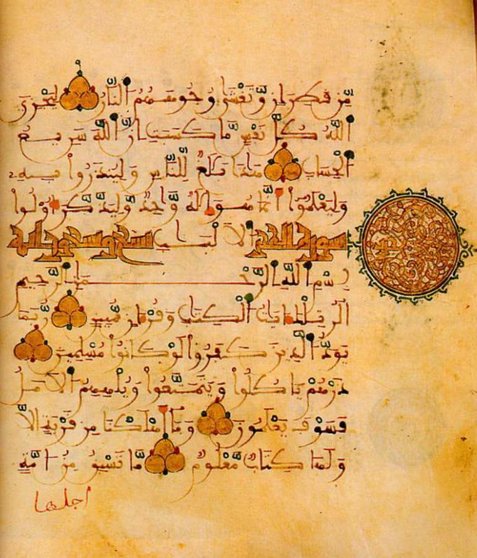 مّن قطران وّتغشى وجوههم النار ليجزي
الله كل نفس ما كسبت ان الله سريع
الحساب هذا بلغ للناس ولينذروا به
وليعلموا انما هو اله واحد وليذكر اولوا
سورة الحجر الالبب تسع وتسعون اية
بسم الله الرحمن الرحيم
الر تلك ايت الكتب وقران مبين ربما
يود الذين كفروا لو كانوا مسلمين
ذرهم ياكلوا ويتمتعوا ويلههم الامل
فسوف يعلمون وما اهلكنا من قرية الا
ولها كتاب معلوم ما تسبق من امة
اجلها